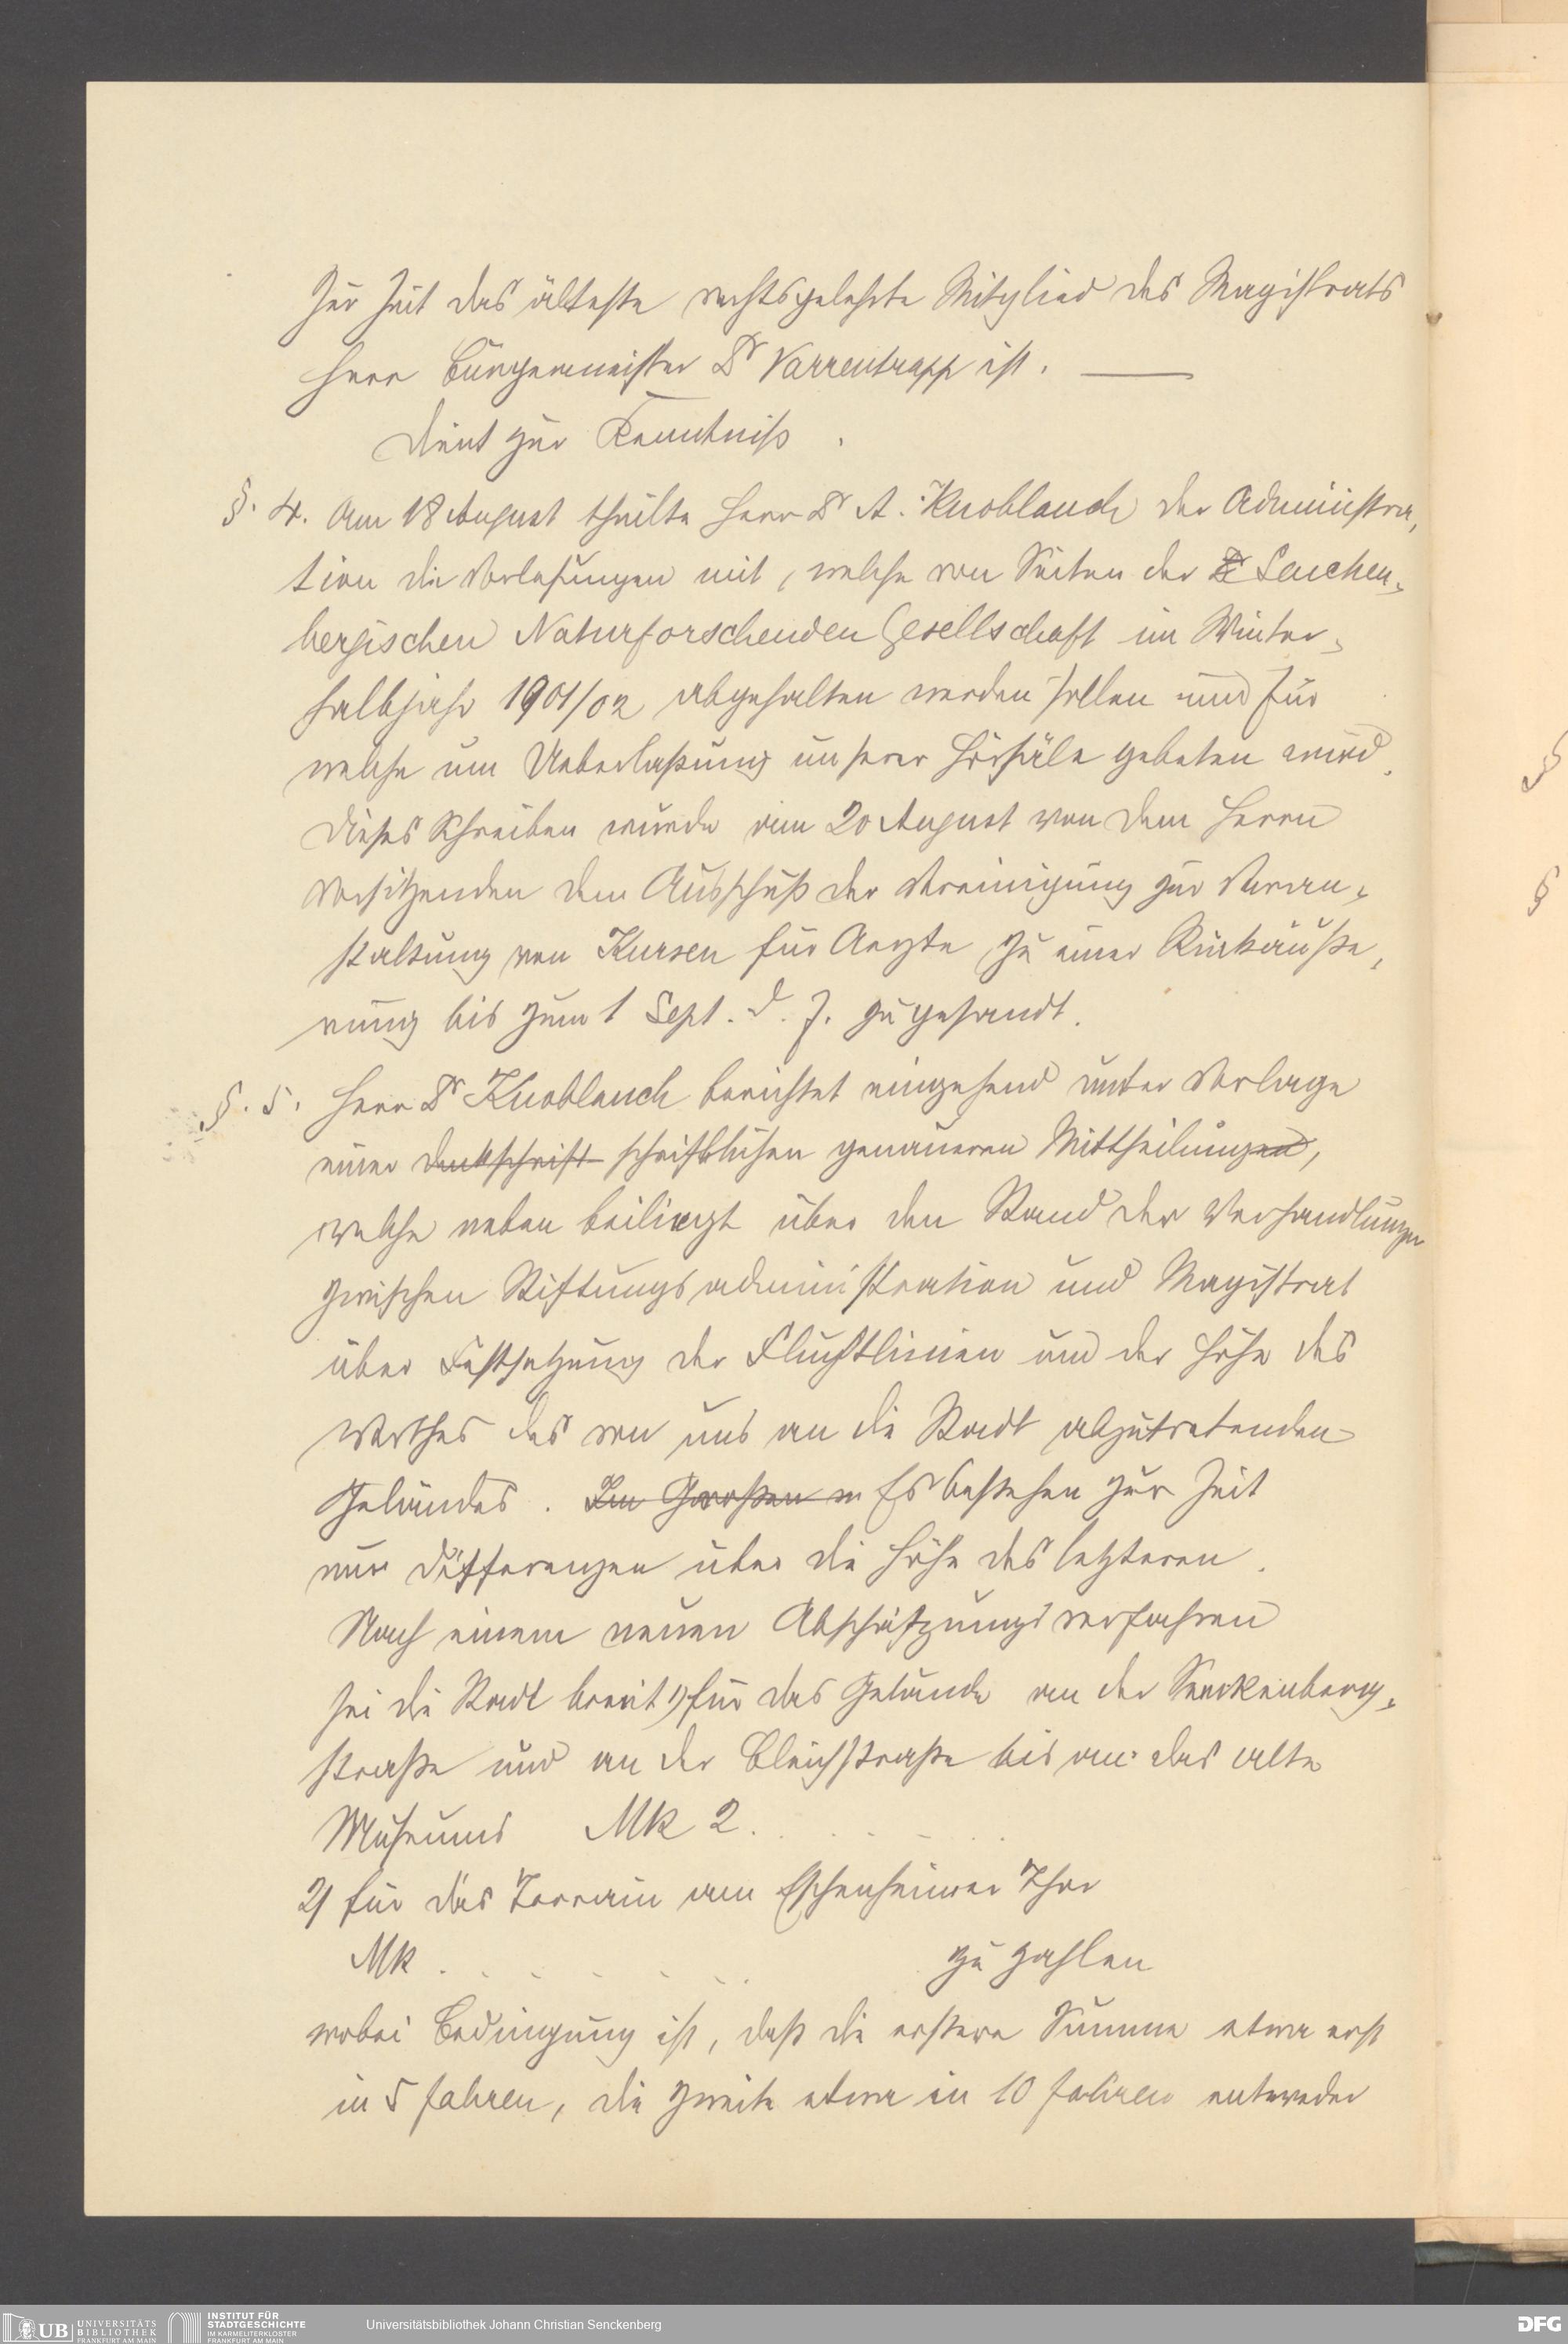 zur Zeit das älteste rechtsgelehrte Mitglied des Magistrats
Herr Bürgermeister Dr Varrentrapp ist. —
Dient zur Kenntniß.
§. 4. Am 18 August theilte Herr Dr A. Knoblauch der Administra-
tion die Vorlesungen mit, welche von Seiten der Sencken
bergischen Naturforschenden Gesellschaft im Winter-
halbjahr 1901/02 abgehalten werden sollen und für
welche um Ueberlaßung unserer Hörsäle gebeten wird.
Dieses Schreiben wurde am 20 August von dem Herrn
Vorsitzenden dem Ausschuß der Vereinigung zur Veran-
staltung von Kursen für Aerzte zu einer Rückäuße-
rung bis zum 1 Sept. d. J. zugesandt.
§. 5. Herr Dr Knoblauch berichtet eingehend unter Vorlage
einer Denkschrift schriftlichen genaueren Mittheilungen,
welche neben beiliegt über den Stand der Verhandlungen
zwischen Stiftungsadministration und Magistrat
über Festsetzung der Fluchtlinien und der Höhe des
Werthes des von uns an die Stadt abzutretenden
Geländes. Im Großen Es bestehen zur Zeit
nur Differenzen über die Höhe des letzteren.
Nach einem neuen Abschätzungsverfahren
sei die Stadt bereit 1) für das Gelände an der Senckenberg-
straße und an der Bleichstraße bis an das alte
Museums Mk 2. . . . . .
2) für das Terrain am Eschenheimer Thor
Mk . . . . . . . zu zahlen
wobei Bedingung ist, daß die erstere Summe etwa erst
in 5 Jahren, die zweite etwa in 10 Jahren entweder
§
§
UB UNIVERSITÄTS
BIBLIOTHEK
FRANKFURT AM MAIN
INSTITUT FÜR
STADTGESCHICHTE
IM KARMELITERKLOSTER
FRANKFURT AM MAIN
Universitätsbibliothek Johann Christian Senckenberg
DFG